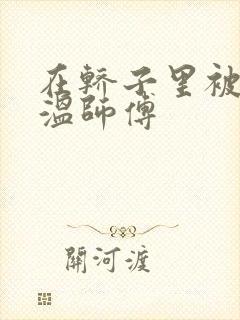 在轿子里被
溫師傅
關河渡